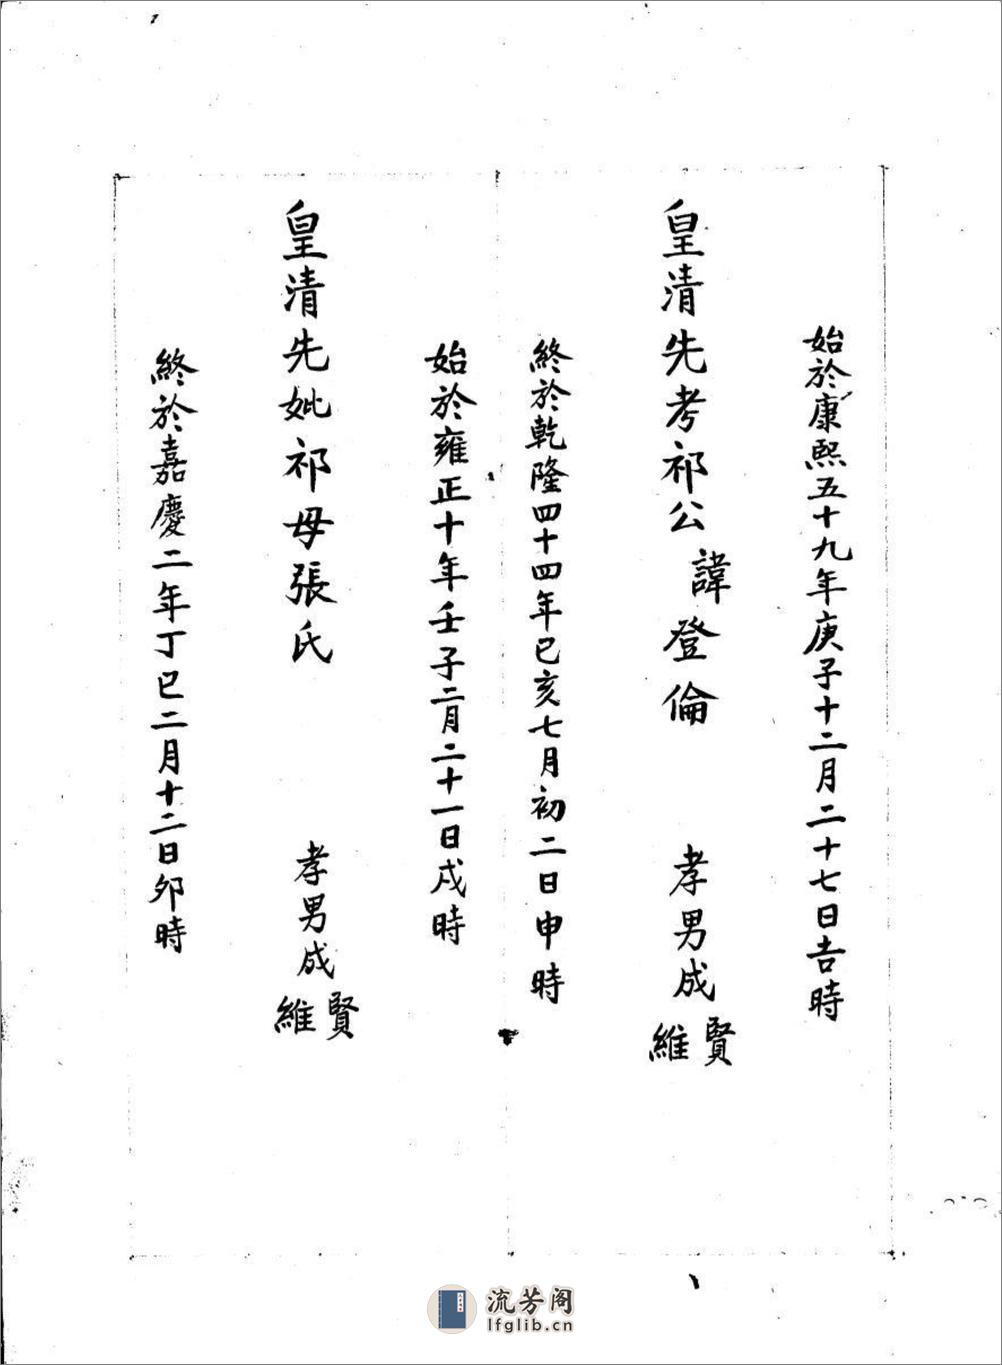 始於康熙五十九年庚子十二月二十七日吉時
皇清先考祁公諱登倫
孝男成賢維
終於乾隆四十四年已亥七月初二日申時
始於雍正十年壬子二月二十一日戌時
皇清先妣祁母張氏
孝男成賢維
終於嘉慶二年丁巳二月十二日卯時
流芳阁
lfglib.cn